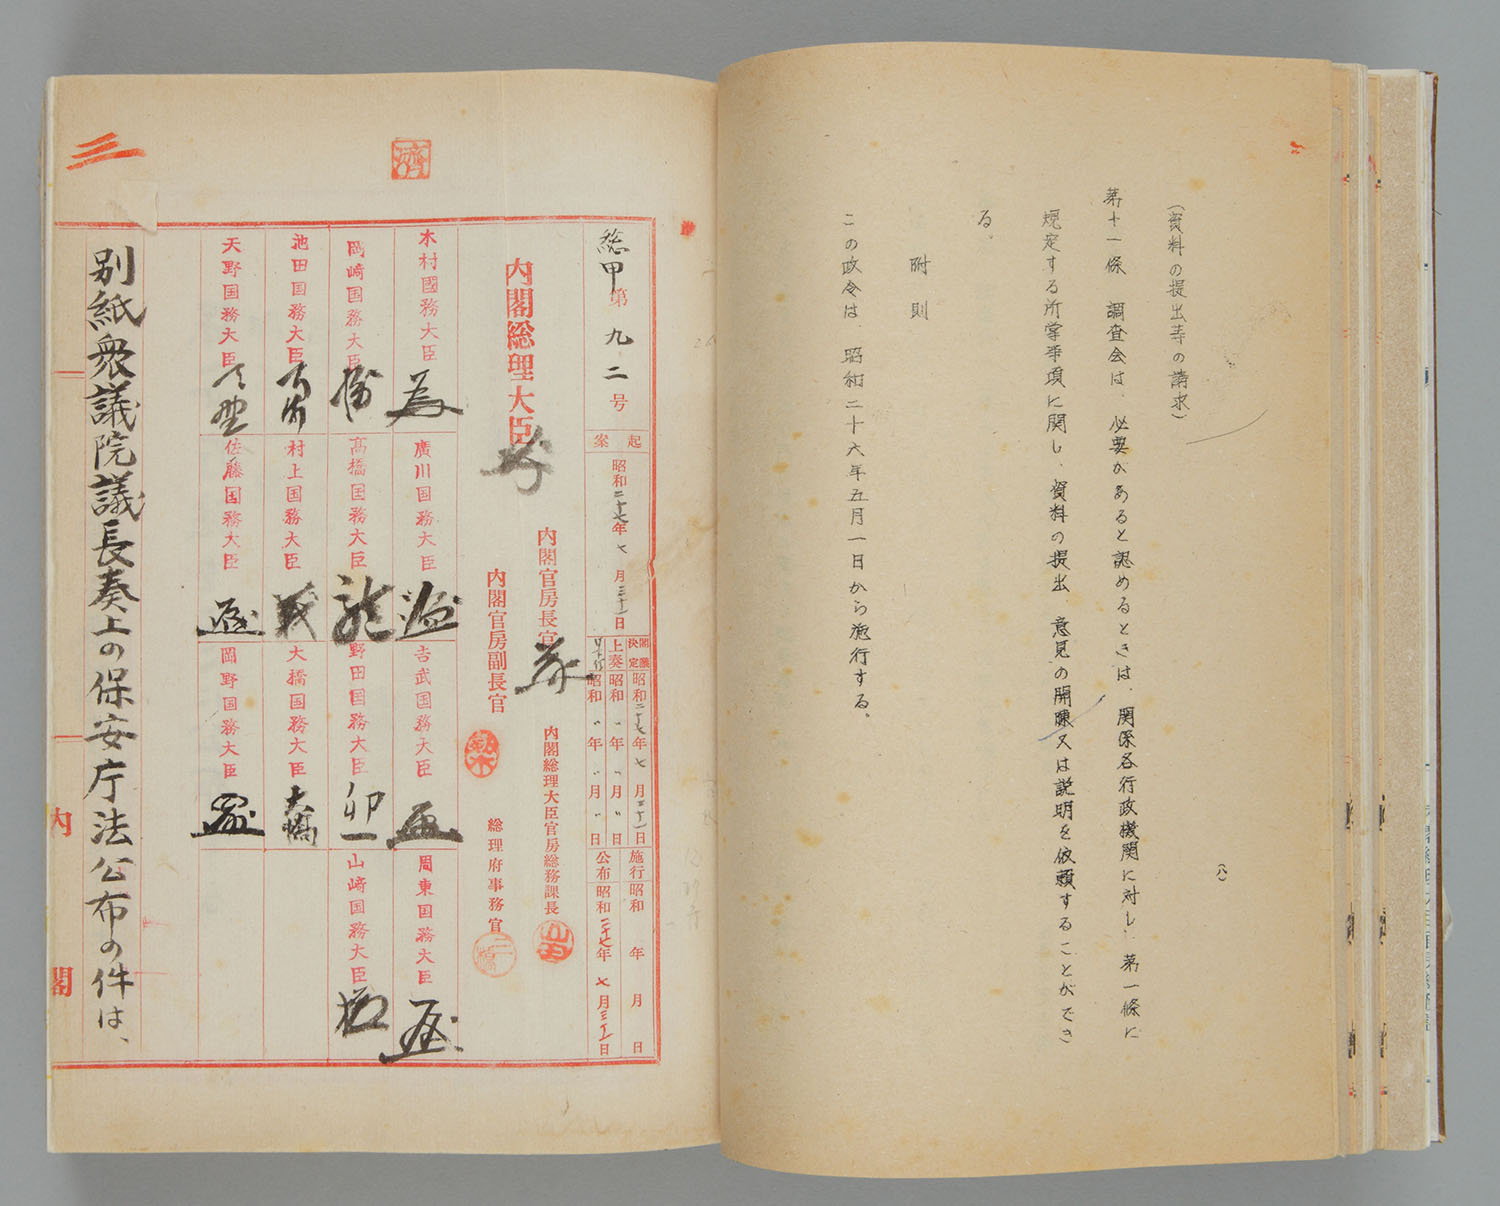 (資料の提出等の請求)
第十一條 調査会は、必要があると認めるときは、関係各行政機関に対し、第一條に
規定する所掌事項に関し、資料の提出、意見の開陳又は説明を依頼することができ
る。
附則
この政令は、昭和二十六年五月一日から施行する。
(八)
三
濟
総甲第九二号
起案 昭和二十七年七月三十一日
閣議決定 昭和二十七年七月三十一日
上奏 昭和〃年〃月〃日
昭和〃年〃月〃日
施行 昭和 年 月 日
公布 昭和二十七年七月三十一日
内閣総理大臣
内閣官房長官
内閣官房副長官
内閣総理大臣官房総務課長
総理府事務官
木村國務大臣
廣川国務大臣
吉武国務大臣
周東国務大臣
岡崎国務大臣
高橋国務大臣
野田国務大臣
山崎国務大臣
池田国務大臣
村上国務大臣
大橋国務大臣
天野国務大臣
佐藤国務大臣
岡野国務大臣
別紙衆議院議長奏上の保安庁法公布の件は、
内閣